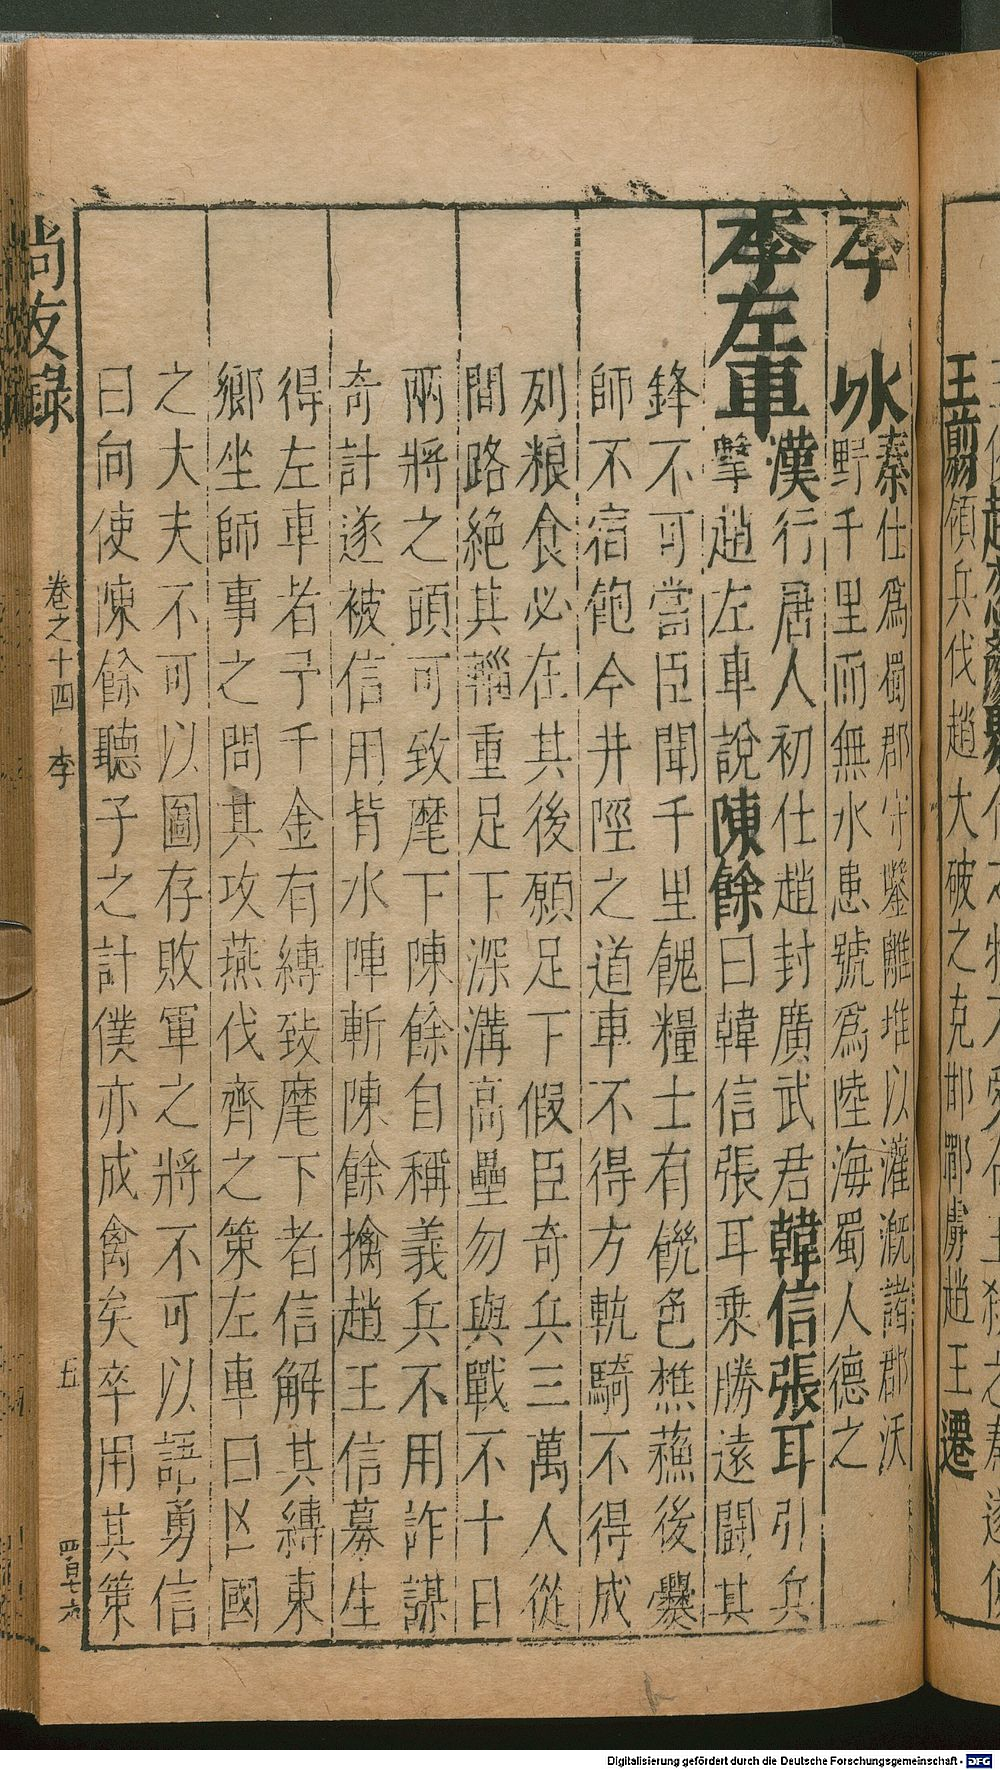 王翦領兵伐趙大破之克邯鄲虜趙王遷
李冰
秦仕爲蜀郡守鑿離堆以灌溉諸郡沃
野千里而無水患號爲陸海蜀人德之
李左車
漢行唐人初仕趙封廣武君韓信張耳引兵
擊趙左車說陳餘曰韓信張耳乘勝遠鬪其
鋒不可當臣聞千里餽糧士有饑色樵蘓後爨
師不宿飽今井陘之道車不得方軌騎不得成
列粮食必在其後願足下假臣奇兵三萬人從
間路絕其輜重足下深溝高壘勿與戰不十日
兩將之頭可致麾下陳餘自稱義兵不用詐謀
奇計遂被信用背水陣斬陳餘擒趙王信募生
得左車者予千金有縛致麾下者信解其縛東
鄉坐師事之問其攻燕伐齊之策左車曰亡國
之大夫不可以圖存敗軍之將不可以語勇信
曰向使陳餘聽子之計僕亦成禽矣卒用其策
尚友錄
卷之十四 李
五
Digitalisierung gefördert durch die Deutsche Forschungsgemeinschaft - DFG